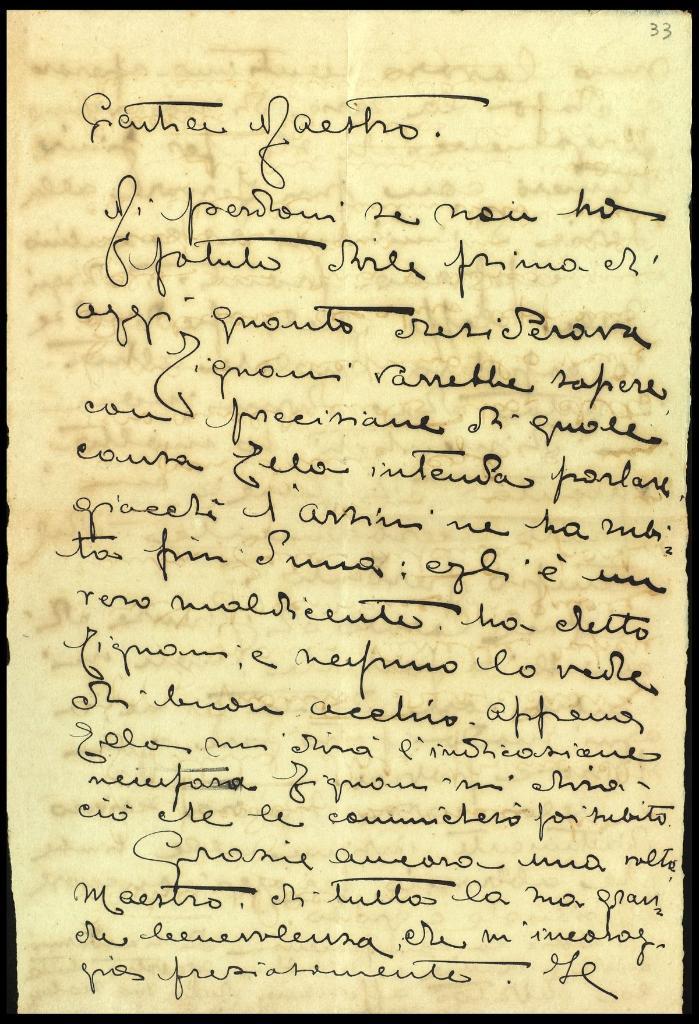 33
Gentile Maestro.
Mi perdoni se non ho
potuto dirle prima di
oggi, quanto desiderava
Zignani vorrebbe sapere
con precisione di quale
causa Ella intenda parlare,
giacchè l'Arsini ne ha subi=
ta più d'una; egli è un
vero maldicente, ha detto
Zignani, e nessuno lo vede
di buon occhio. Appena
Ella mi dirà l'indicazione
Zignani mi dirà
ciò che le comunicherò poi subito.
Grazie ancora una volta,
Maestro, di tutta la sua gran=
de benevolenza, che m'incorag-
gia preziosamente. Il